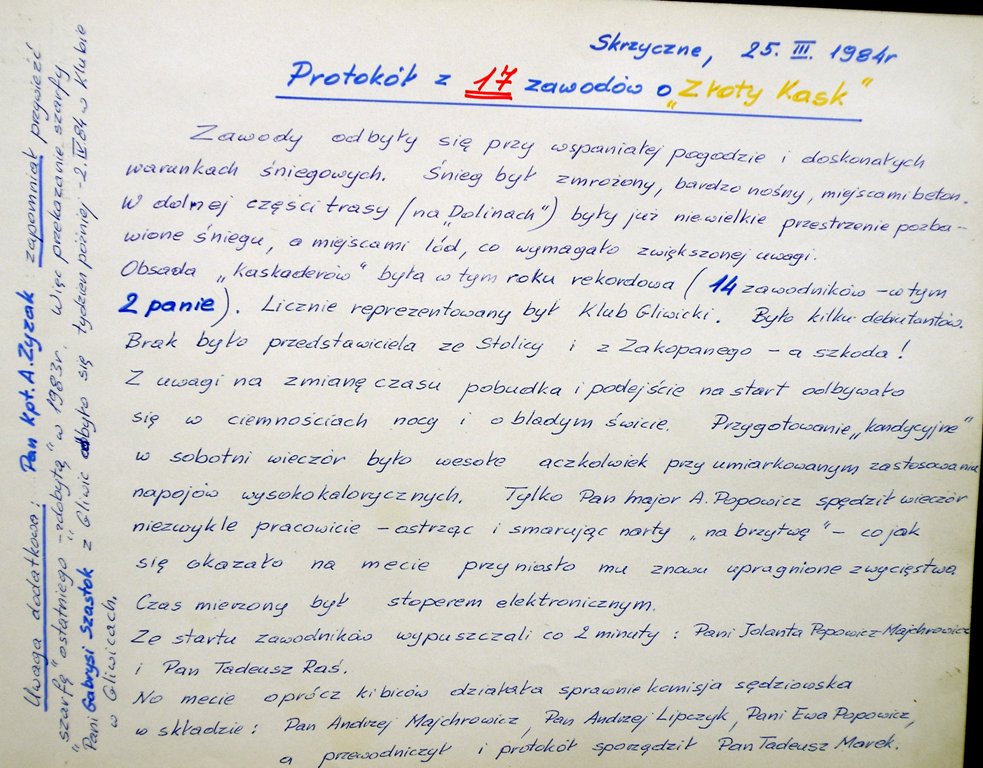 Skrzyczne, 25. III. 1984r
Protokół z 17 zawodów o „Złoty Kask"
Zawody odbyły się przy wspaniałej pogodzie i doskonałych
warunkach śniegowych. Śnieg był zmrożony, bardzo nośny, miejscami beton.
W dolnej części trasy (na „Dolinach") były już niewielkie przestrzenie pozba-
wione śniegu, a miejscami lód, co wymagało zwiększonej uwagi.
Obsada „kaskaderów" była w tym roku rekordowa (14 zawodników - w tym
2 panie). Licznie reprezentowany był Klub Gliwicki. Było kilku debiutantów.
Brak było przedstawiciela ze Stolicy i z Zakopanego - a szkoda!
Z uwagi na zmianę czasu pobudka i podejście na start odbywało
się w ciemnościach nocy i o bladym świcie. Przygotowanie „kondycyjne"
w sobotni wieczór było wesołe aczkolwiek przy umiarkowanym zastosowaniu
napojów wysokokalorycznych. Tylko Pan major A. Popowicz spędził wieczór
niezwykle pracowicie - ostrząc i smarując narty „na brzytwę" - co jak
się okazało na mecie przyniosło mu znowu upragnione zwycięstwo.
Czas mierzony był stoperem elektronicznym.
Ze startu zawodników wypuszczali co 2 minuty: Pani Jolanta Popowicz-Majchrowicz
i Pan Tadeusz Raś.
Na mecie oprócz kibiców działała sprawnie komisja sędziowska
w składzie: Pan Andrzej Majchrowicz, Pan Andrzej Lipczyk, Pani Ewa Popowicz,
a przewodniczył i protokół sporządził Pan Tadeusz Marek.
Uwaga dodatkowa: Pan kpt. A. Zyzak zapomniał przywieźć
„szarfę" ostatniego - zdobytą" w 1983r. Więc przekazanie szarfy
Pani Gabrysi Szastok z Gliwic odbyło się tydzień później - 2.IV.84 w Klubie
w Gliwicach.